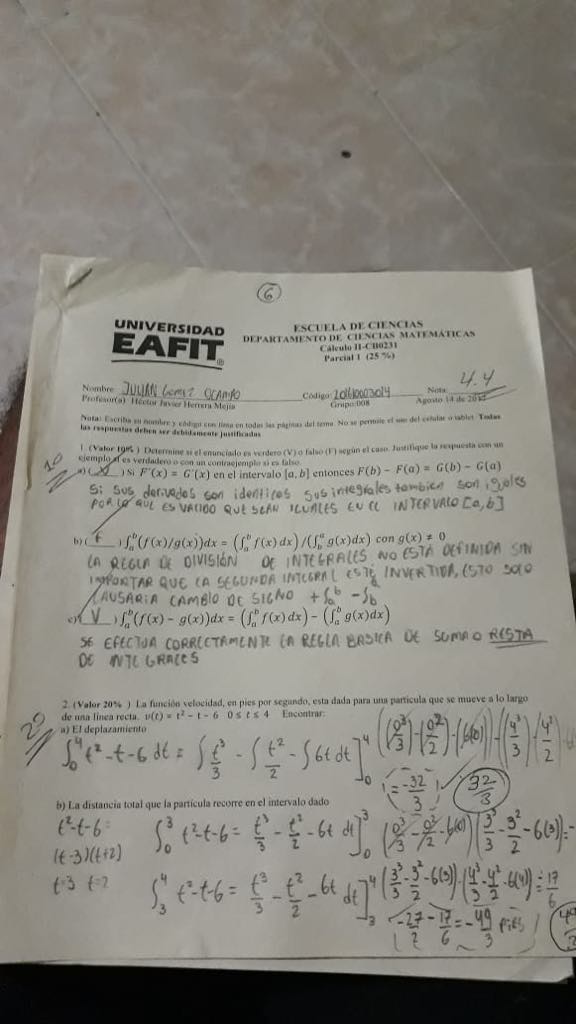 6
UNIVERSIDAD
EAFIT
ESCUELA DE CIENCIAS
DEPARTAMENTO DE CIENCIAS MATEMÁTICAS
Cálculo II-CB0231
Parcial 1 (25 %)
Nombre: JULIAN GOMEZ OCAMPO Código: Nota: 4.4
Profesor(a) Héctor Javier Herrera Mejía Grupo:008 Agosto 14 de
Nota: Escriba su nombre y código con tinta en todas las páginas del tema. No se permite el uso del celular o tablet. Todas
las respuestas deben ser debidamente justificadas
10
1. (Valor 10% ) Determine si el enunciado es verdero (V) o falso (F) según el caso. Justifique la respuesta con un
ejemplo si es verdadero o con un contraejemplo si es falso.
a) ( V ) Si F'(x) = G'(x) en el intervalo [a, b] entonces F(b) − F(a) = G(b) − G(a)
Si sus derivadas son identicas sus integrales tambien son iguales
POR LO QUE ES VALIDO QUE SEAN IGUALES EN EL INTERVALO [a,b]
b) ( F ) ∫ₐᵇ(f(x)/g(x))dx = (∫ₐᵇ f(x)dx)/(∫_b^a g(x)dx) con g(x) ≠ 0
LA REGLA DE DIVISIÓN DE INTEGRALES NO ESTÁ DEFINIDA SIN
IMPORTAR QUE LA SEGUNDA INTEGRAL ESTÉ INVERTIDA, ESTO SOLO
CAUSARIA CAMBIO DE SIGNO +∫ₐᵇ −∫_b^a
c) ( V ) ∫ₐᵇ(f(x) − g(x))dx = (∫ₐᵇ f(x)dx) − (∫ₐᵇ g(x)dx)
SE EFECTUA CORRECTAMENTE LA REGLA BASICA DE SUMA O RESTA
DE INTEGRALES
20
2. (Valor 20% ) La función velocidad, en pies por segundo, esta dada para una partícula que se mueve a lo largo
de una línea recta. v(t) = t² − t − 6 0 ≤ t ≤ 4 Encontrar:
a) El deplazamiento
∫₀⁴ t²-t-6 dt = ∫t³/3 - ∫t²/2 - ∫6t dt]₀⁴ ((0³/3)-(0²/2)-(6(0))-(4³/3)-(4²/2)
= -32/3 32/3
b) La distancia total que la partícula recorre en el intervalo dado
t²-t-6=
(t-3)(t+2)
t=3 t=2
∫₀³ t²-t-6 = t³/3 - t²/2 - 6t dt]₀³ (0³/3 - 0²/2 - 6(0))(3³/3 - 3²/2 - 6(3))=-
∫₃⁴ t²-t-6 = t³/3 - t²/2 - 6t dt]₃⁴ (3³/3 - 3²/2 - 6(3))-(4³/3 - 4²/2 - 6(4)) = 17/6
-27/2 - 17/6 = -49/3 PIES